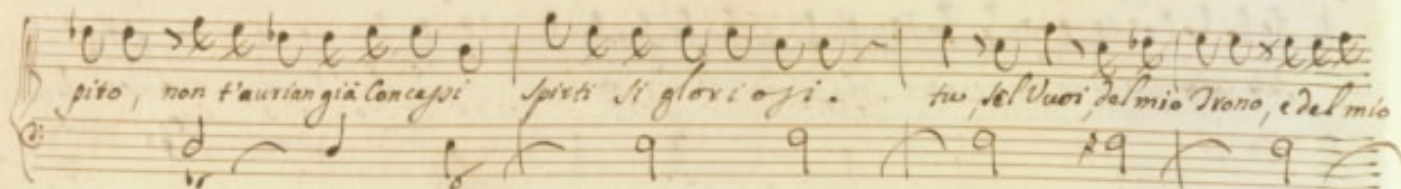 pito, non t'aurian già Concessi spirti si gloriosi. tu, sel Vuoi, del mio Trono, e del mio